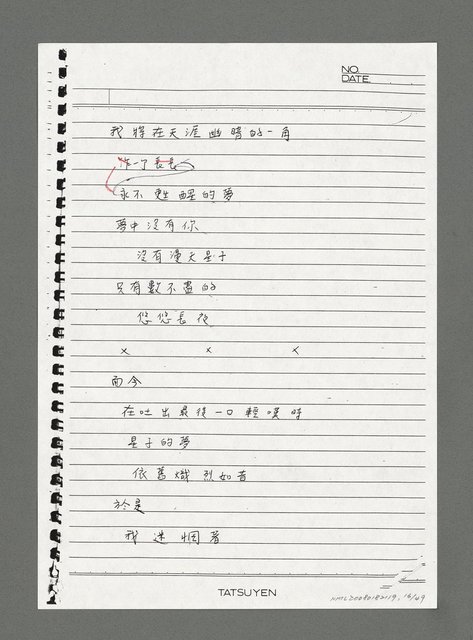 NO.
DATE
我將在天涯幽暗的一角
作一了長長
永不甦醒的夢
夢中沒有你
沒有滿天星子
只有數不盡的
悠悠長夜
× × ×
而今
在吐出最後一口輕嘆時
星子的夢
依舊熾烈如昔
於是
我迷惘著
TATSUYEN